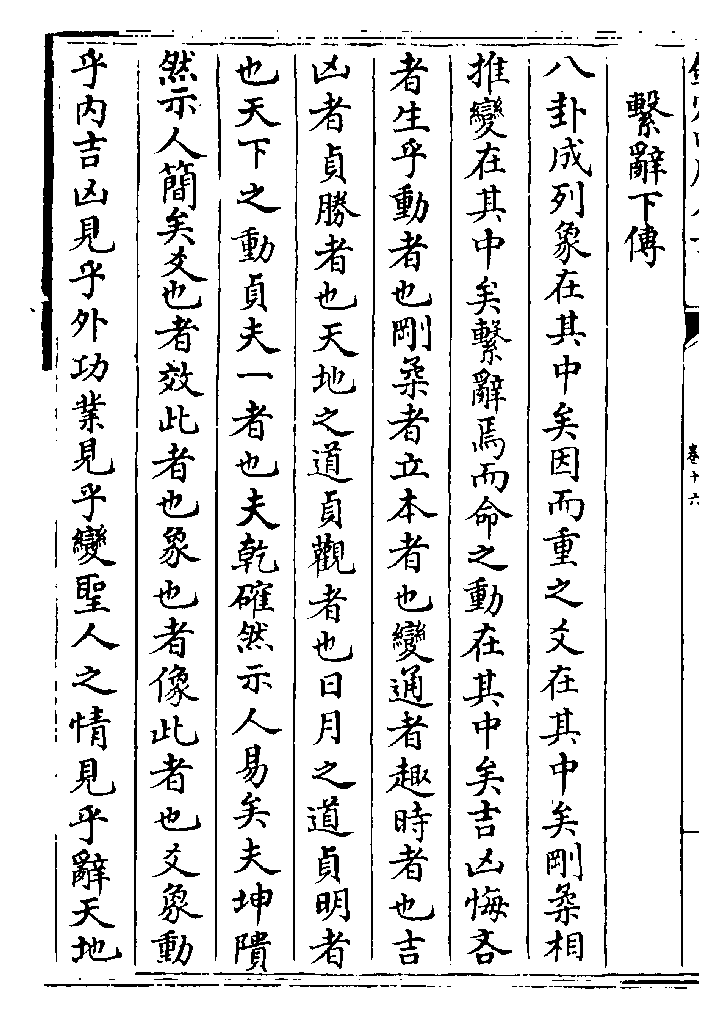 繫辭下傳
八卦成列象在其中矣因而重之爻在其中矣剛柔相
推變在其中矣繫辭焉而命之動在其中矣吉凶悔吝
者生乎動者也剛柔者立本者也變通者趣時者也吉
凶者貞勝者也天地之道貞觀者也日月之道貞明者
也天下之動貞夫一者也夫乾確然示人易矣夫坤隤
然示人簡矣爻也者效此者也象也者像此者也爻象動
乎内吉凶見乎外功業見乎變聖人之情見乎辭天地
卷十六